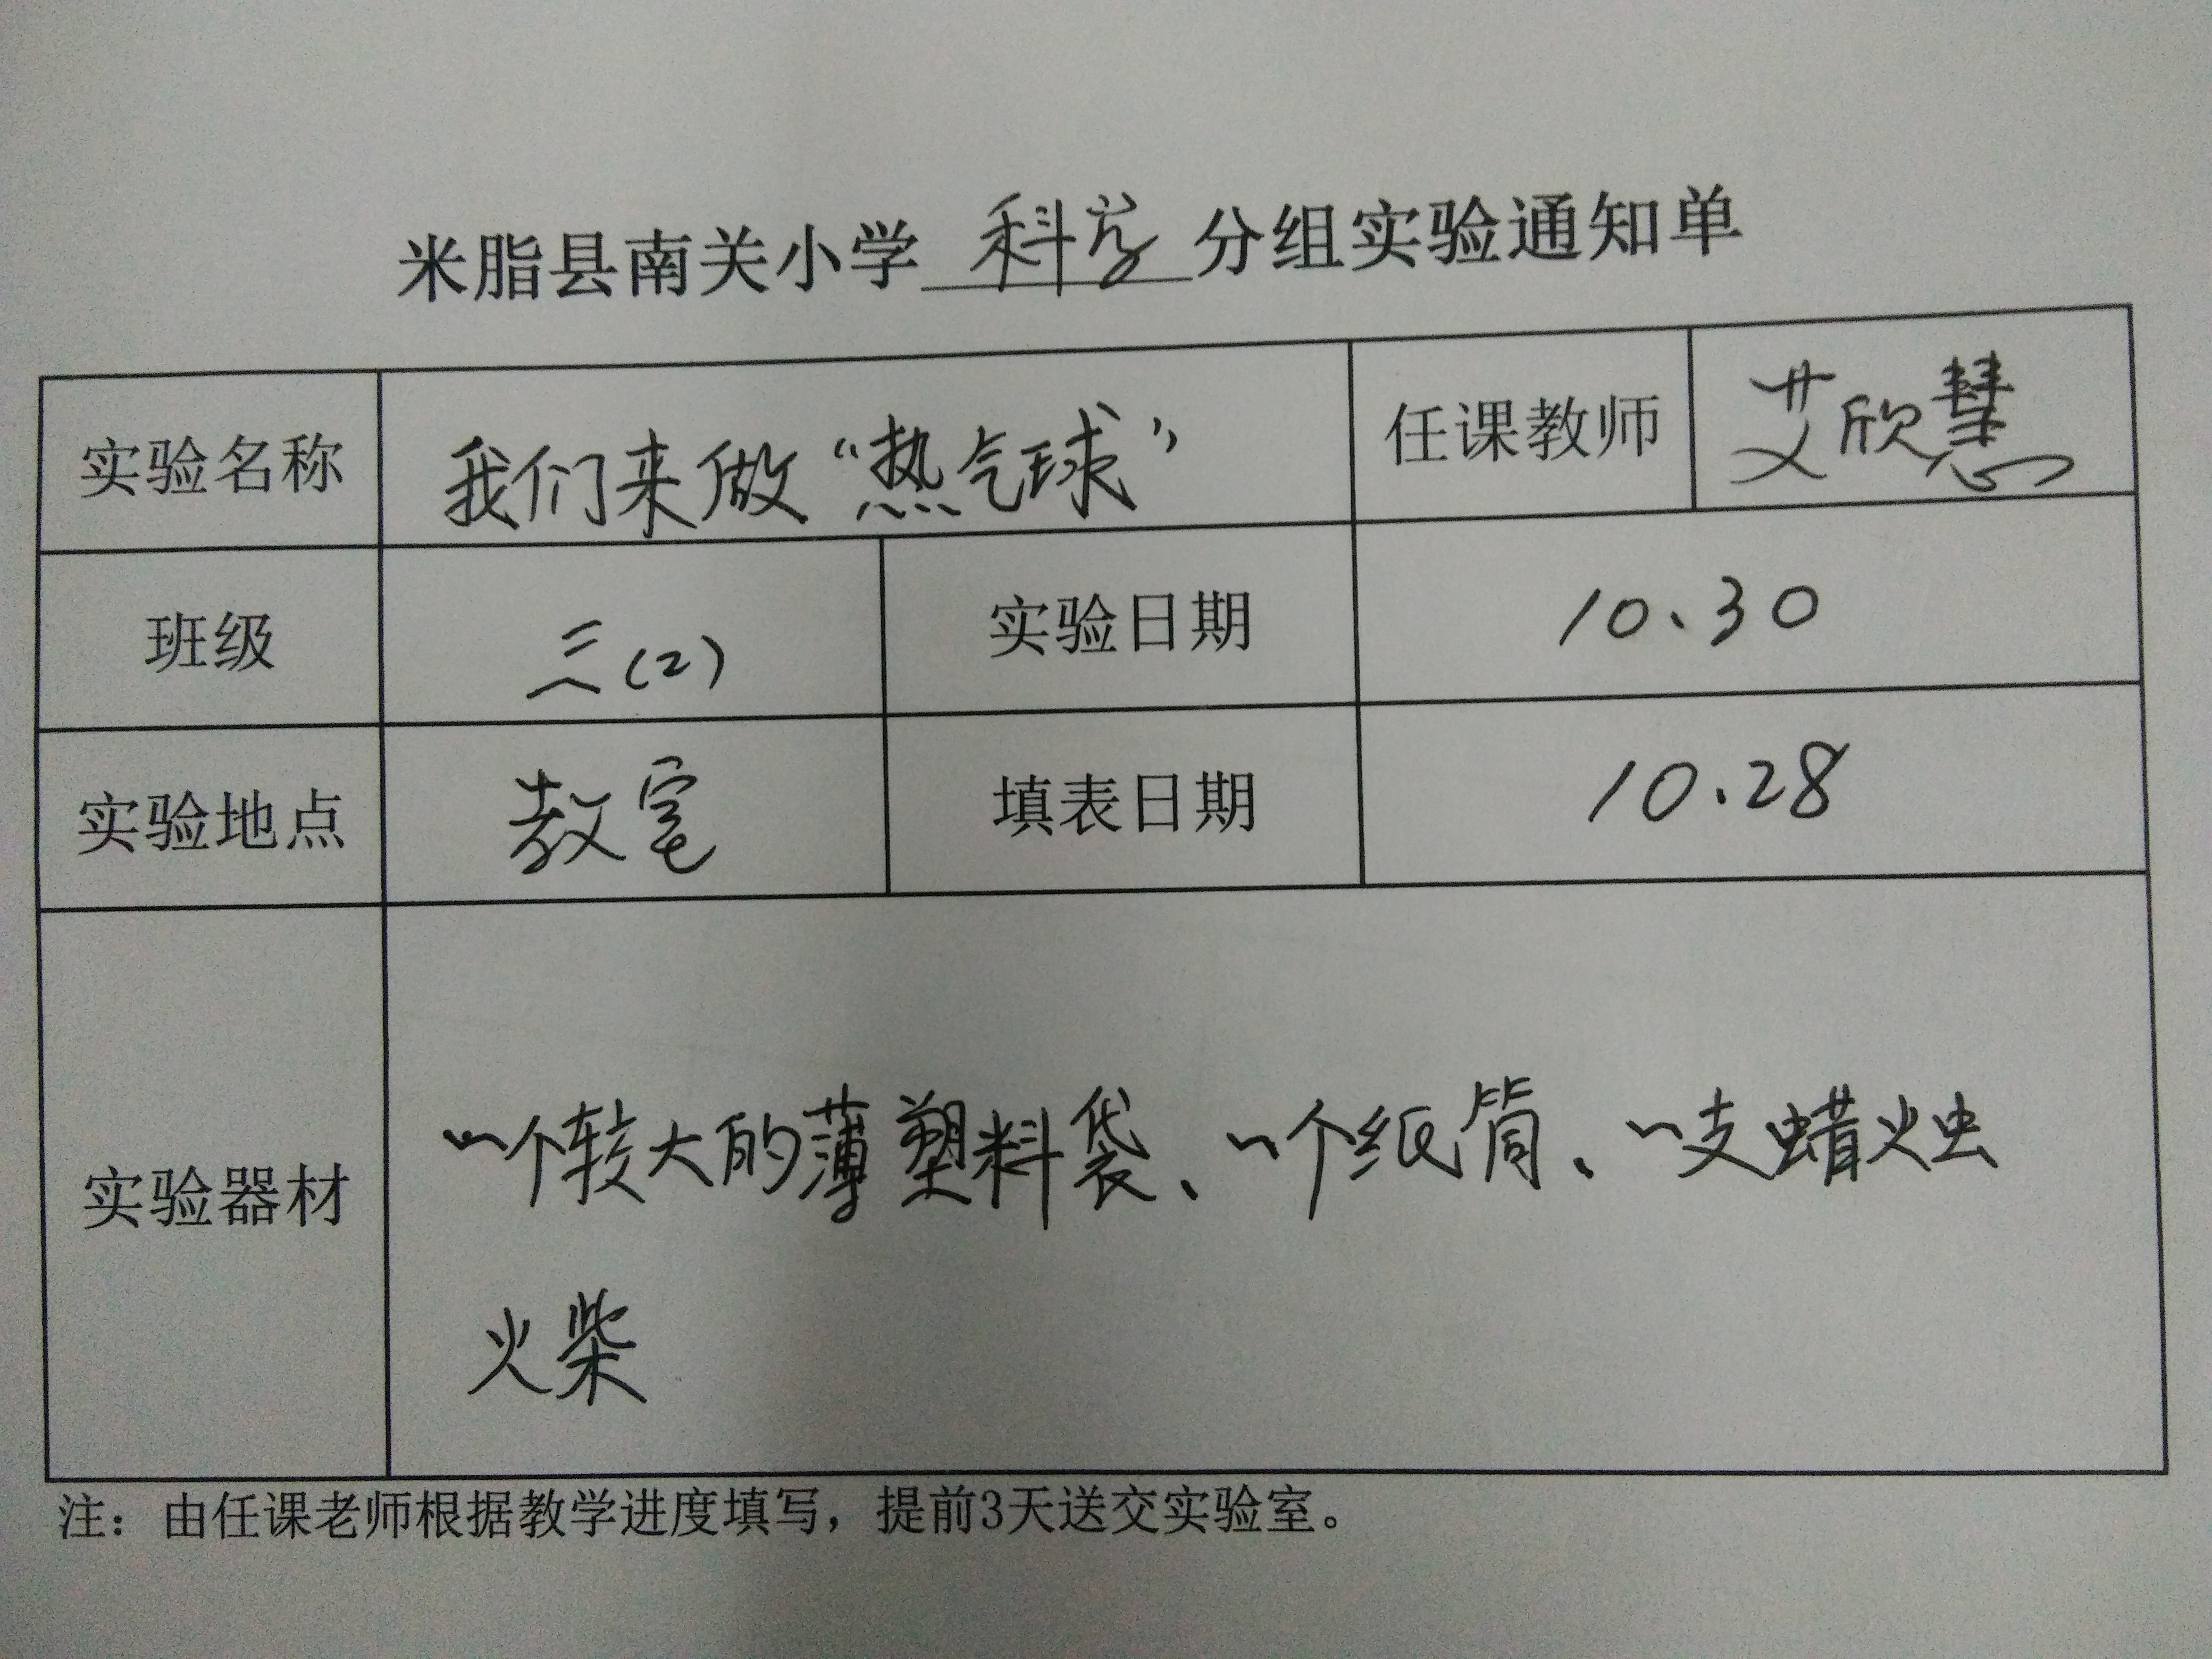 米脂县南关小学 科学 分组实验通知单
实验名称 我们来做“热气球” 任课教师 艾欣慧
班级 三(2) 实验日期 10.30
实验地点 教室 填表日期 10.28
实验器材 一个较大的薄塑料袋、一个纸筒、一支蜡烛
火柴
注：由任课老师根据教学进度填写，提前3天送交实验室。